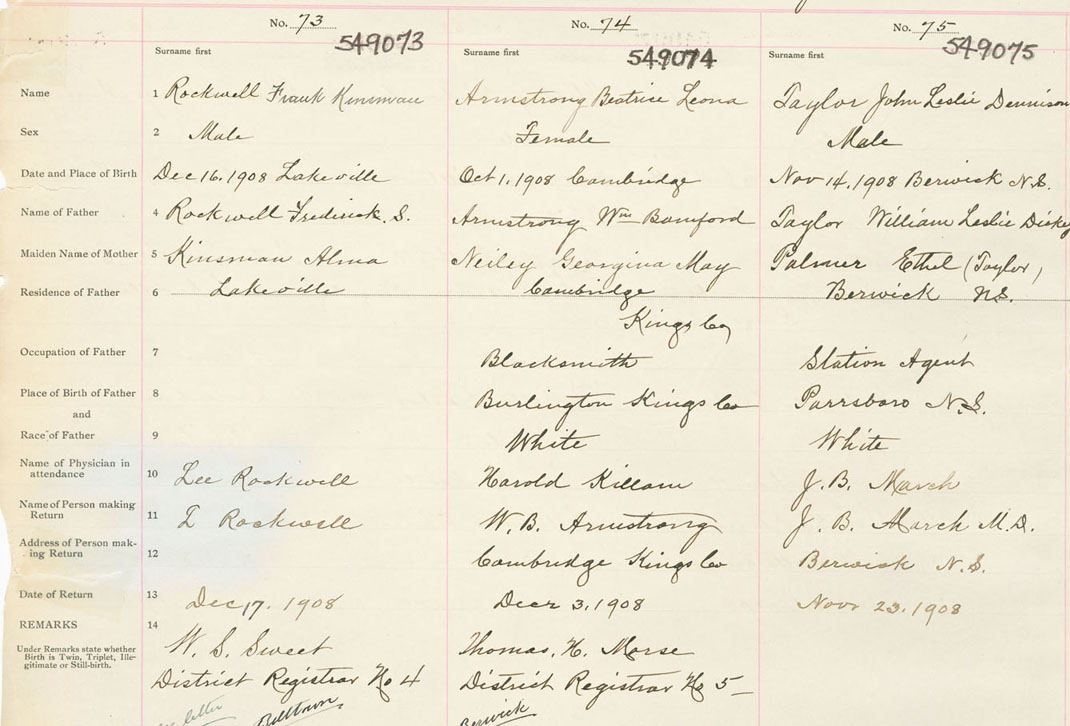 No. 73
No. 74
No. 75
549073
549074
549075
Surname first
Surname first
Surname first
Name 1 Rockwell Frank Kinsman
Armstrong Beatrice Leona
Taylor John Leslie Dennison
Sex 2 Male
Female
Male
Date and Place of Birth 3 Dec 16. 1908 Lakeville
Oct 1. 1908 Cambridge
Nov 14. 1908 Berwick N.S.
Name of Father 4 Rockwell Frederick. S.
Armstrong Wm Bamford
Taylor William Leslie Dickey
Maiden Name of Mother 5 Kinsman Alma
Neiley Georgina May
Palmer Ethel (Taylor)
Residence of Father 6 Lakeville
Cambridge
Kings Co
Berwick NS.
Occupation of Father 7
Blacksmith
Station Agent
Place of Birth of Father 8
and
Burlington Kings Co
Parrsboro N.S.
Race of Father 9
White
White
Name of Physician in
attendance 10 Lee Rockwell
Harold Killam
J. B. March
Name of Person making
Return 11 L Rockwell
W. B. Armstrong
J. B. March M.D.
Address of Person mak-
ing Return 12
Cambridge Kings Co
Berwick N.S.
Date of Return 13 Dec 17. 1908
Decr 3. 1908
Novr 23. 1908
REMARKS 14
Under Remarks state whether
Birth is Twin, Triplet, Ille-
gitimate or Still-birth.
W. S. Sweet
Thomas. H. Morse
District Registrar No 4
District Registrar No 5
letter
Berwick